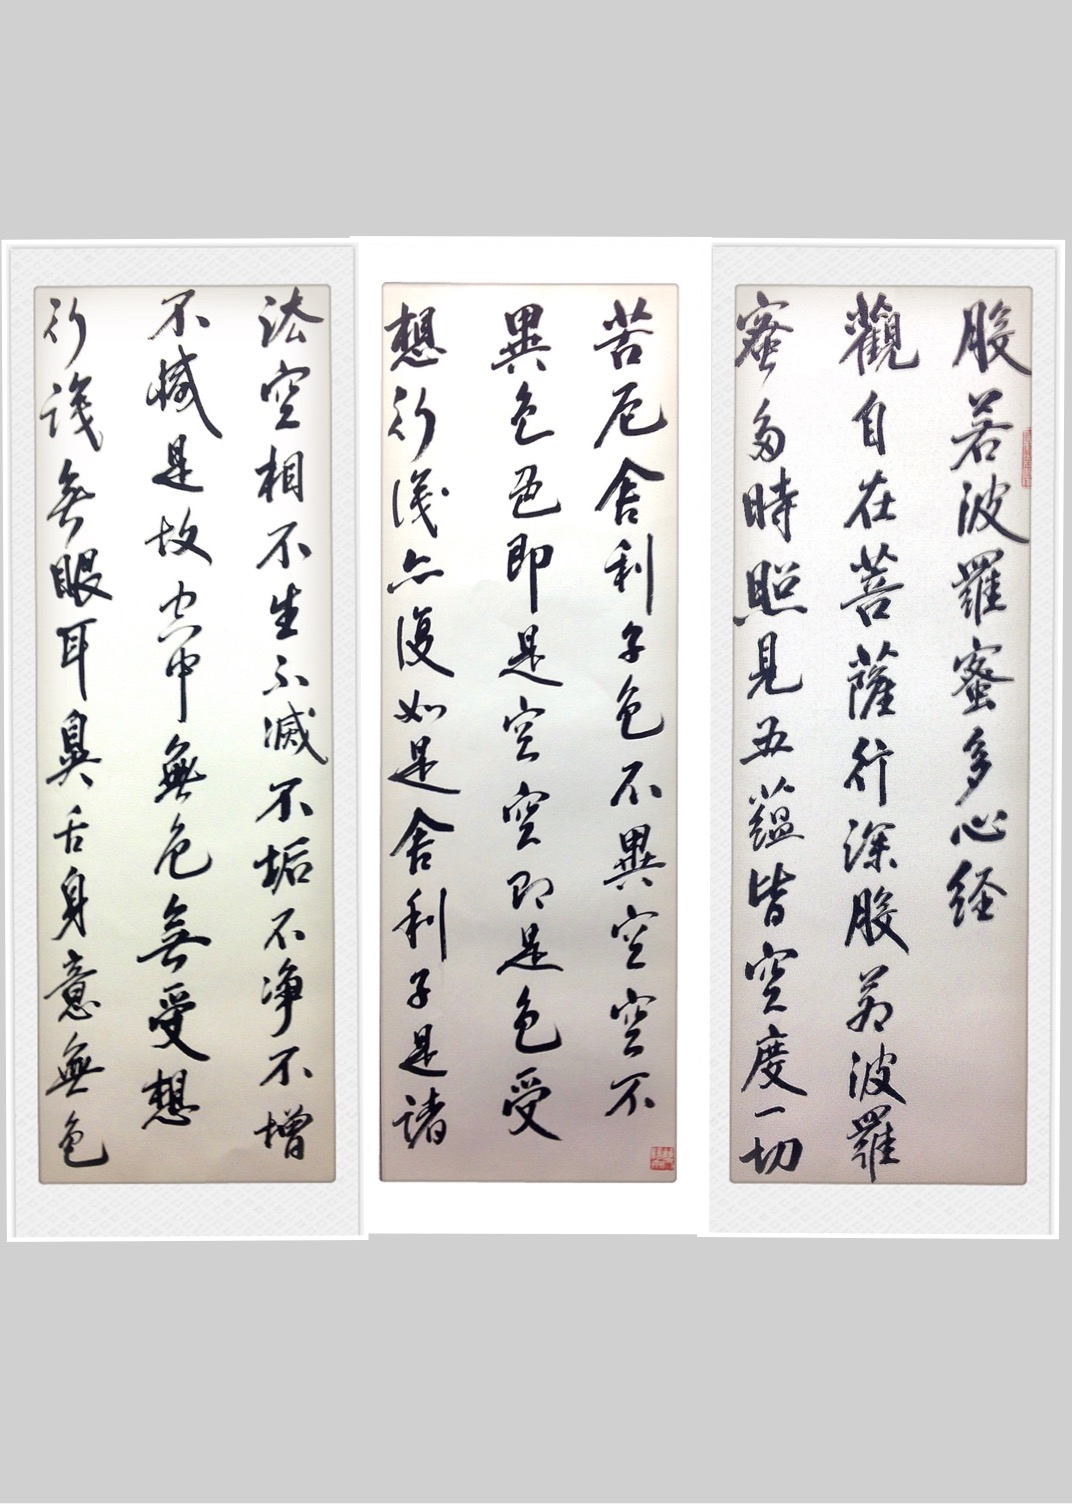 般若波羅蜜多心経
觀自在菩薩行深般若波羅
蜜多時照見五蘊皆空度一切
苦厄舍利子色不異空空不
異色色即是空空即是色受
想行識亦復如是舍利子是諸
法空相不生不滅不垢不净不增
不減是故空中無色無受想
行識無眼耳鼻舌身意無色